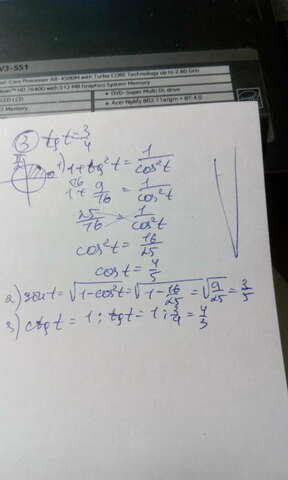 V3-551
Core Processor A8-4500M with Turbo CORE Technology up to 2.80 GHz
HD 7640G with 512 MB Dedicated System Memory
LED LCD
• DVD-Super Multi DL drive
Memory
• Acer Nplify 802.11a/g/n + BT 4.0
③ tg t = 3/4
π/2
1) 1 + tg²t = 1/cos²t
1 + 9/16 = 1/cos²t
25/16 = 1/cos²t
cos²t = 16/25
cos t = 4/5
2) sin t = √(1 - cos²t) = √(1 - 16/25) = √(9/25) = 3/5
3) ctg t = 1 : tg t = 1 : 3/4 = 4/3